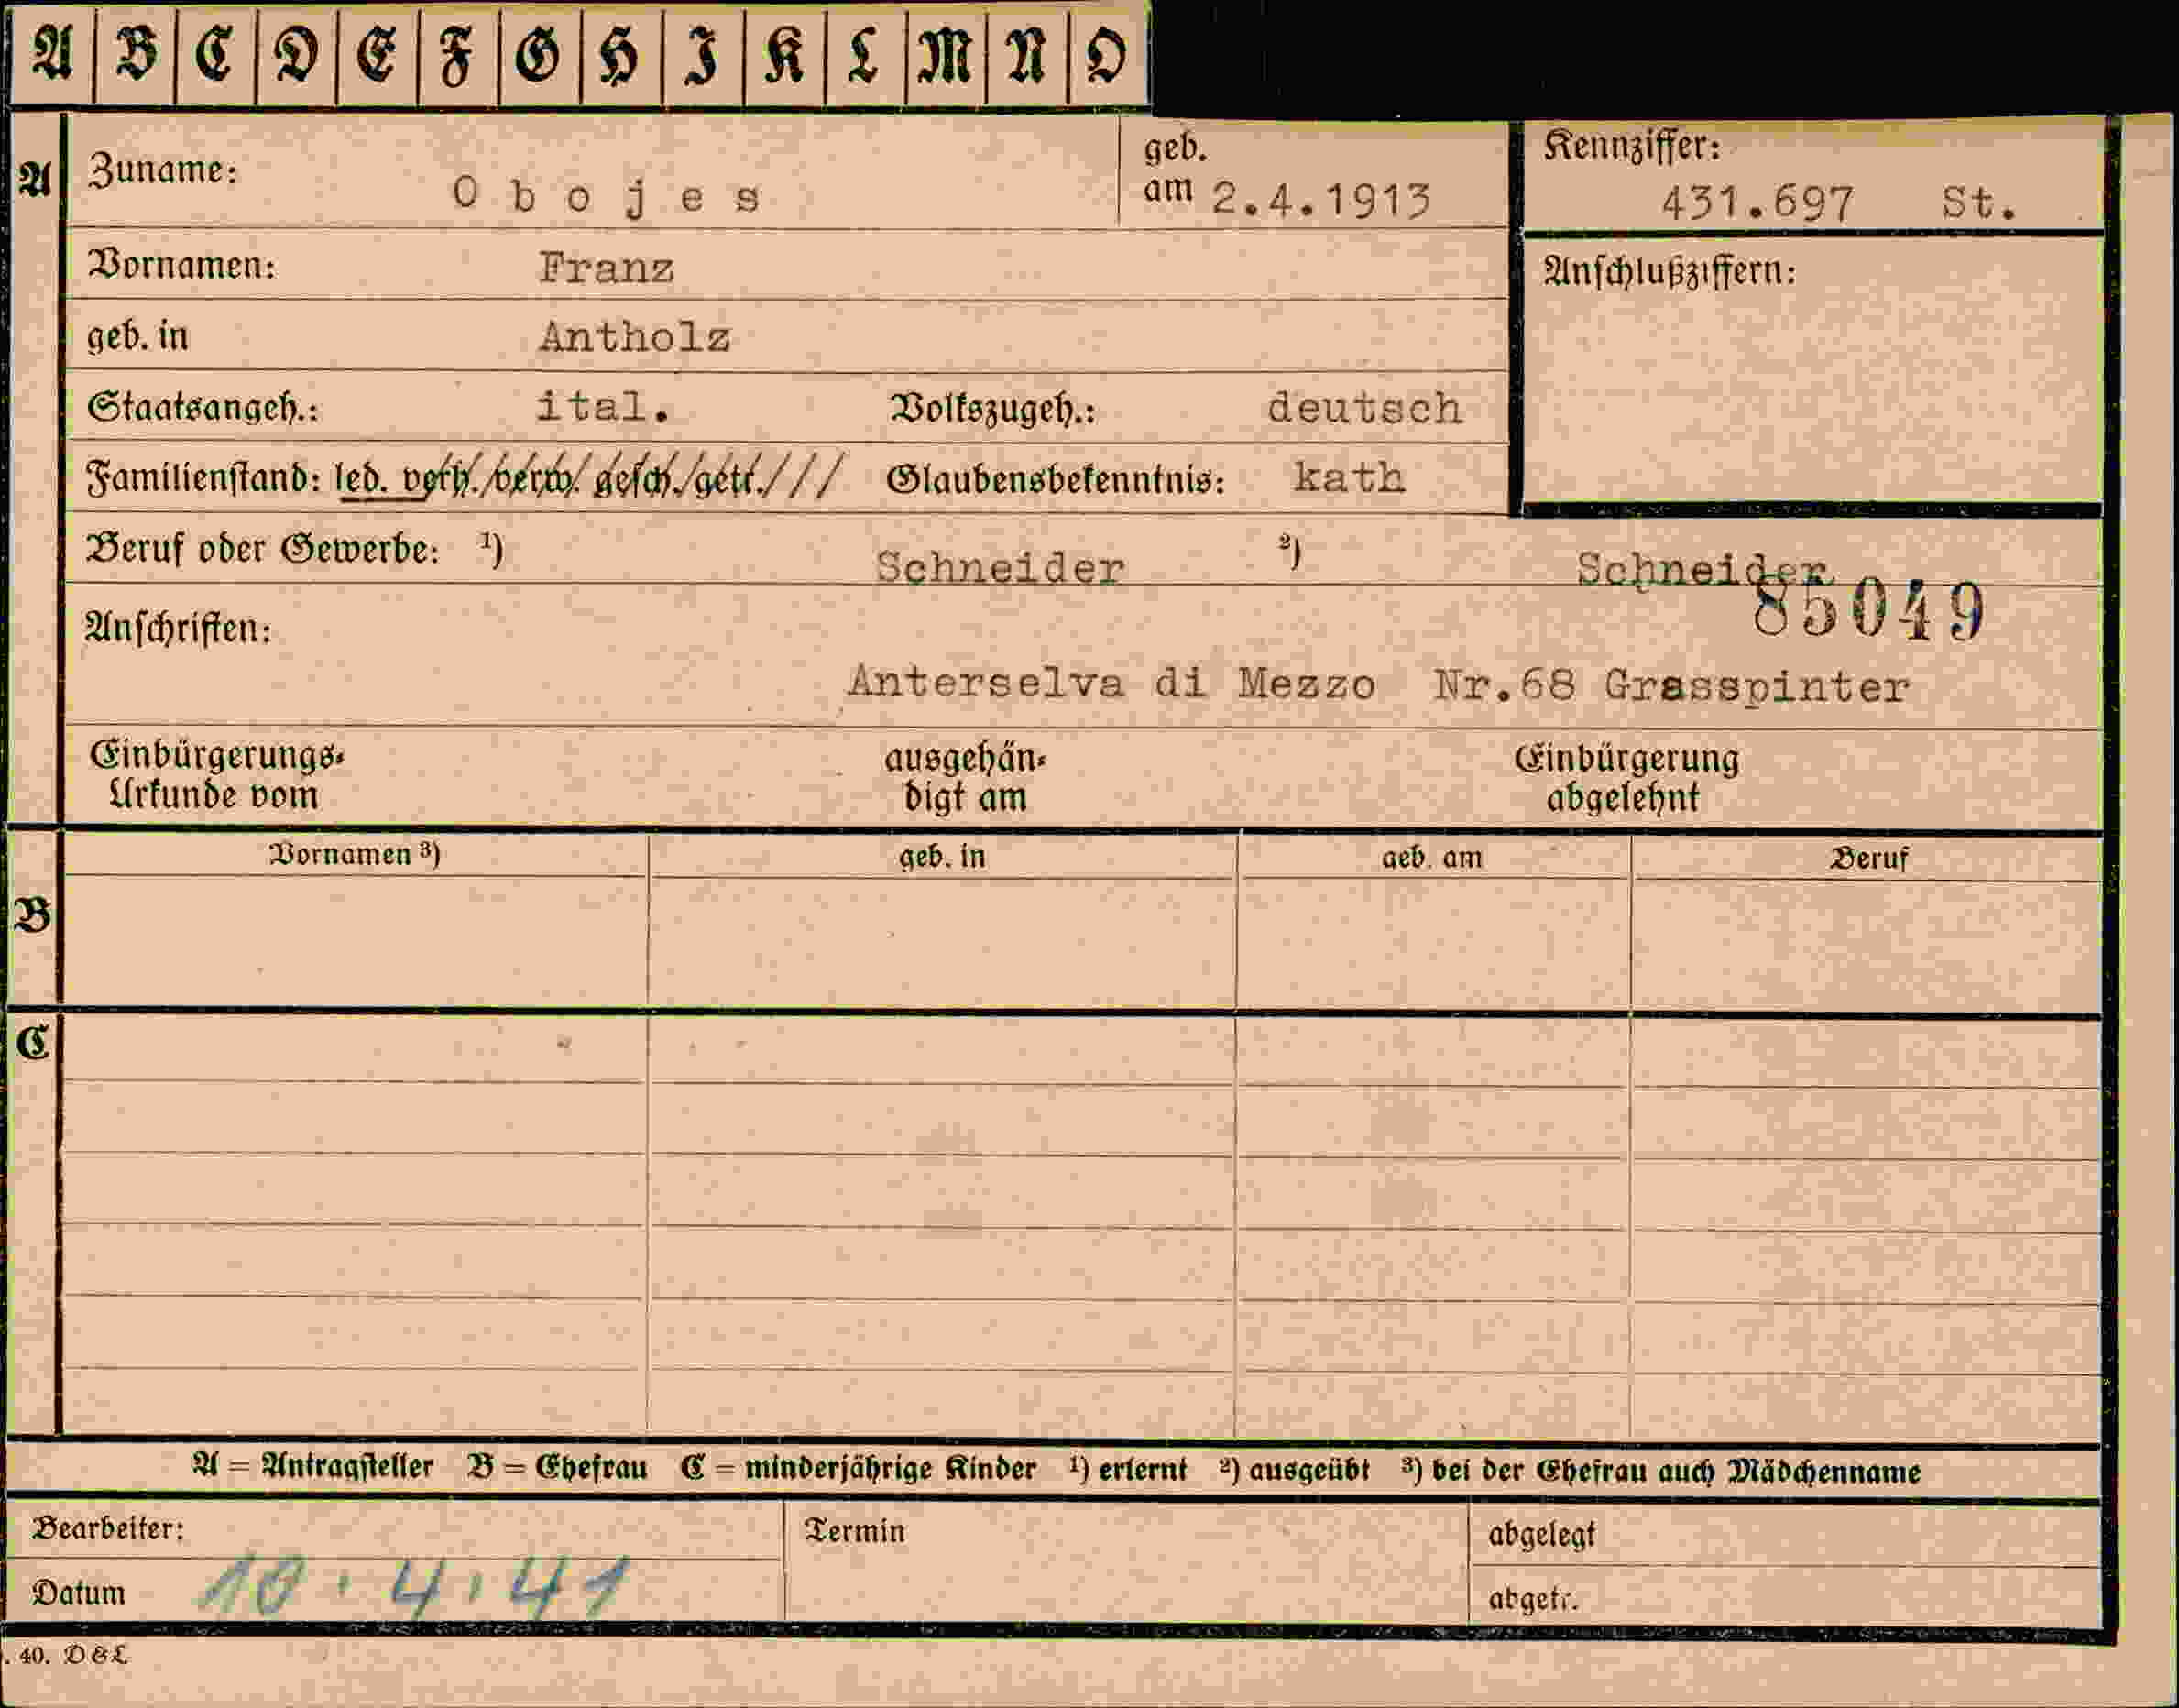 A B C D E F G H I K L M N O
A Zuname: Obojes geb. am 2.4.1913 Kennziffer: 431.697 St.
Vornamen: Franz Anschlußziffern:
geb. in Antholz
Staatsangeh.: ital. Volkszugeh.: deutsch
Familienstand: led. verh./verw./gesch./getr./// Glaubensbekenntnis: kath
Beruf oder Gewerbe: ¹) Schneider ²) Schneider
85049
Anschriften:
Anterselva di Mezzo Nr.68 Grasspinter
Einbürgerungs- ausgehän- Einbürgerung
Urkunde vom digt am abgelehnt
Vornamen ³) geb. in geb. am Beruf
B
C
A = Antragsteller B = Ehefrau C = minderjährige Kinder ¹) erlernt ²) ausgeübt ³) bei der Ehefrau auch Mädchenname
Bearbeiter: Termin abgelegt
Datum 10.4.41 abgetr.
. 40. D&L